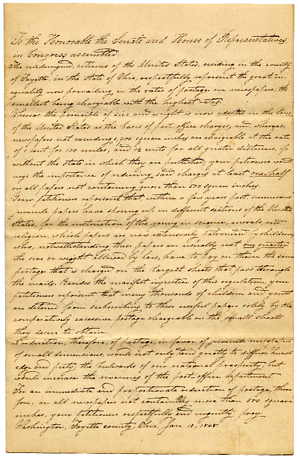 To the Honorable the Senate and House of Representatives
in Congress assembled.
The undersigned, citizens of the United States, residing in the county
of Fayette, in the state of Ohio, respectfully represent the great in-
equality now prevailing, in the rates of postage on newspapers, the
smallest being chargable with the highest rates.
Whereas the principle of size and weight is now adopted in the laws
of the United States as the basis of post office charges, and charges
newspaper not exceeding 1900 square inches
of 1 cent for 100 miles, and 1½ cents for all greater distances, if
without the state in which they are published, your petitioners would
urge the importance of reducing said charges at least one half
on all papers not containing more than 500 square inches.
Your petitioners represent that within a few years past numerous
juvenile papers have sprung up in different sections of the United
States, for the instruction of the young in science, morals, and
religion, which papers are now extensively patronized by children
who, notwithstanding these papers are usually not one quarter
the size or weight allowed by law, have to pay on them the same
postage that is charged on the largest sheets that pass through
the mails. Besides the manifest injustice of this regulation, your
petitioners represent that many thousands of children and youth
are deterred from subscribing to this useful paper solely by the
comparatively excessive postage chargeable on the small sheets
they desire to obtain.
A reduction, therefore, of postage in favor of juvenile newspapers
of small dimensions, would not only tend greatly to diffuse knowl-
edge and piety, the bulwarks of our national prosperity, but
increase the revenues of the post office department.
For an immediate and proportionate reduction of postage, there-
fore, on all newspapers not containing more than 500 square
inches, your petitioners respectfully and urgently pray.
Washington, Fayette county, Ohio, Jan. 10, 1848